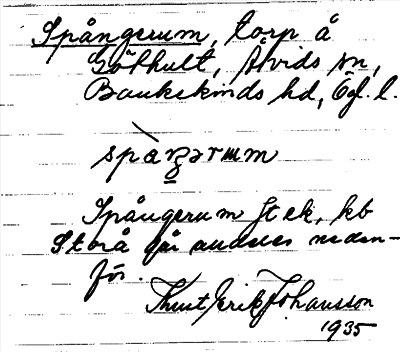 Spångerum, torp å
Göthult, Åtvids sn,
Bankekinds hd, Ög. l.
spàŋərɯm
Spångerum St ek, kb
Storå går
neden-
för.
Knut Erik Johansson
1935